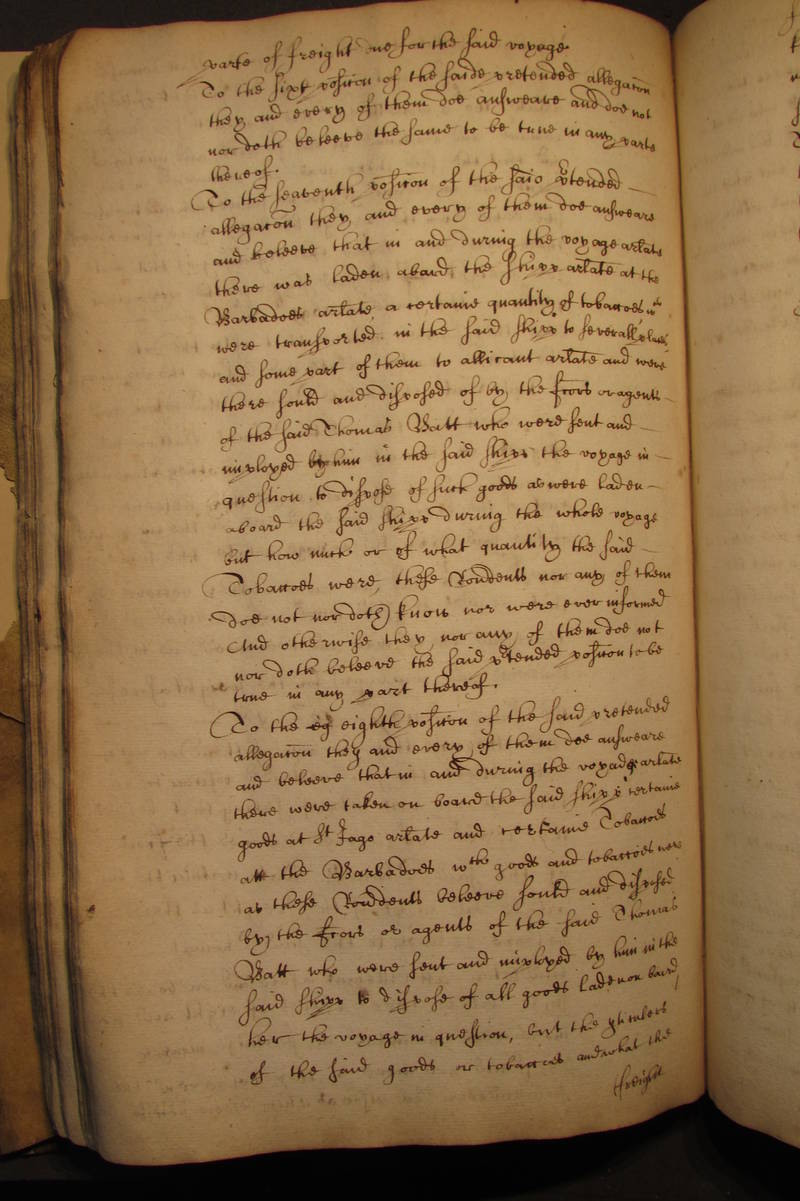 parte of freight due for the said voyage.
To the sixt posicon of the saide pretended allegacon
they and every of them doe answeare and doe not
nor doth beleeve the same to be true in any parte
thereof.
To the seaventh posicon of the said pretended
allegacon they and every of them doe answeare
and beleeve that in and during the voyage arlate
there was laden aboard the shipp arlate at the
Barbadoes arlate a certaine quantity of tobaccoes wch
were transported in the said shipp to severall places
and some part of them to allicant arlate and were
there sould and disposed of by the ffcors or agents
of the said Thomas Batt who were sent and
imployed by him in the said shipp the voyage in
question to dispose of such goods as were laden
aboard the said shipp during the whole voyage
but how much or of what quantity the said
Tobaccoes were, these Rondents nor any of them
doe not nor doth know nor were ever informed
And otherwise they nor any of them doe not
nor doth beleeve the said ptended posicon to be
true in any part thereof.
To the eig eighth posicon of the said pretended
allegacon they and every of them doe answeare
and beleeve that in and during the voyadge arlate
there were taken on board the said shipp certaine
goods at St Jago arlate and certaine Tobaccoes
att the Barbadoes wch goods and tobaccoes were
as these Rondents beleeve sould and disposed
by the ffcors or agents of the said Thomas
Batt who were sent and imployed by him in the
said shipp to dispose of all goods laden on board
her the voyage in question, but the numbers
of the said goods or tobaccoes and what the
freight